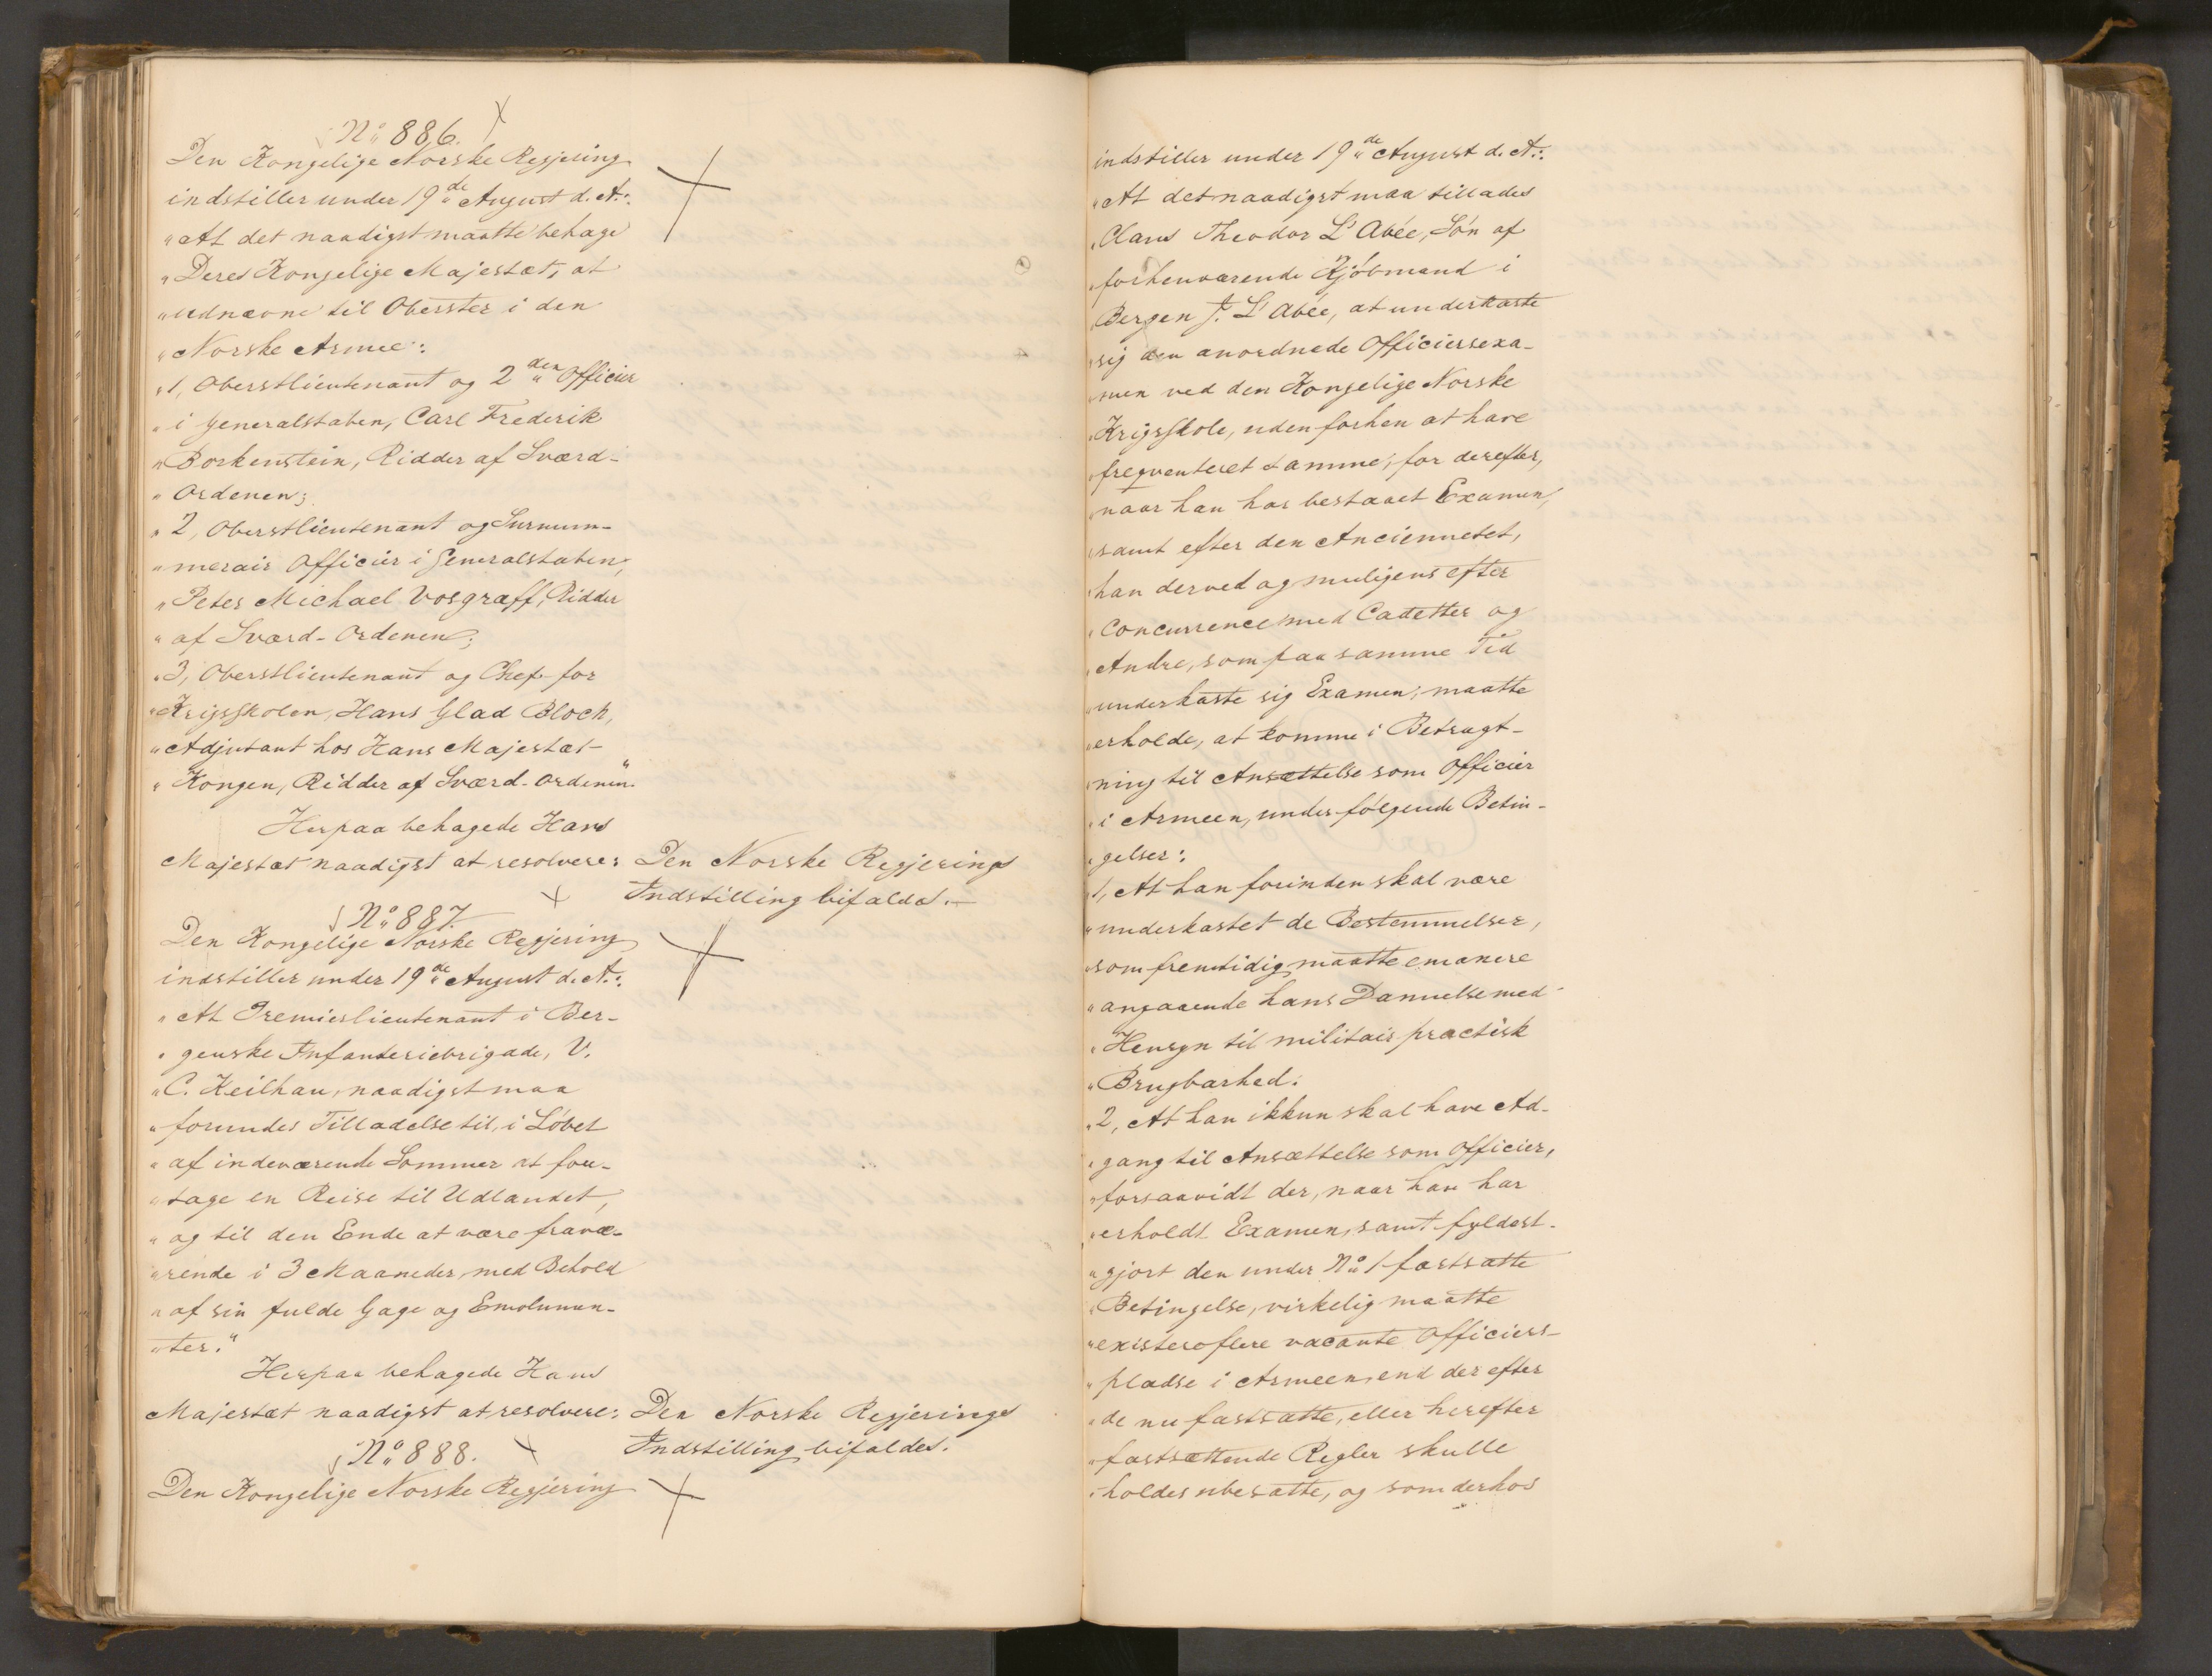 No 886.
Den Kongelige Norske Regjering
indstiller under 19de August d. A.:
"At det naadigst maatte behage
"Deres Kongelige Majestæt, at
"udnævne til Oberster i den
"Norske Armee:
"1, Oberstlieutenant og 2den Officier
"i Generalstaben, Carl Frederik
"Borkenstein, Ridder af Sværd-
"Ordenen;
"2, Oberstlieutenant og Surnum-
"merair Officier i Generalstaben,
"Peter Michael Vosgraff, Ridder
"af Sværd-Ordenen;
"3, Oberstlieutenant og Chef for
"Krigsskolen, Hans Glad Bloch,
"Adjutant hos Hans Majestæt
"Kongen, Ridder af Sværd-Ordenen"
Herpaa behagede Hans
Majestæt naadigst at resolvere:
Den Norske Regjerings
Indstilling bifaldes.-
No 887.
Den Kongelige Norske Regjering
indstiller under 19de August d. A.:
"At Premierlieutenant i Ber-
"genske Infanteriebrigade, V.
"C. Keilhau, naadigst maa
"forundes Tilladelse til, i Löbet
"af indeværende Sommer at fore-
"tage en Reise til Udlandet,
"og til den Ende at være fravæ-
"rende i 3 Maaneder, med Behold
"af sin fulde Gage og Emolumen-
"ter."
Herpaa behagede Hans
Majestæt naadigst at resolvere:
Den Norske Regjerings
Indstilling bifaldes.
No 888.
Den Kongelige Norske Regjering
indstiller under 19de August d. A.:
"At det naadigst maa tillades
"Claus Theodor L'Abée, Sön af
"forhenværende Kjöbmand i
"Bergen J. L'Abée, at underkaste
"sig den anordnede Officiersexa-
"men ved den Kongelige Norske
"Krigsskole, uden forhen at have
"freqventeret samme, for derefter,
"naar han har bestaaet Examen,
"samt efter den Anciennetet,
"han derved og muligens efter
"Concurrence med Cadetter og
"Andre, som paa samme Tid
"underkaste sig Examen, maatte
"erholde, at komme i Betragt-
"ning til Ansættelse som Officier
"i Armeen, under fölgende Betin-
"gelser:
"1, At han forinden skal være
"underkastet de Bestemmelser,
"som fremtidig maatte emanere
"angaaende hans Dannelse med
"Hensyn til militair practisk
"Brugbarhed.
"2, At han ikkun skal have Ad-
"gang til Ansættelse som Officier,
"forsaavidt der, naar han har
"erholdt Examen, samt fyldest-
"gjort den under No 1 fastsatte
"Betingelse, virkelig maatte
"existere flere vacante Officiers-
"pladse i Armeen, end der efter
"de nu fastsatte, eller herefter
"fastsættende Regler skulle
"holdes ubesatte, og som derhos